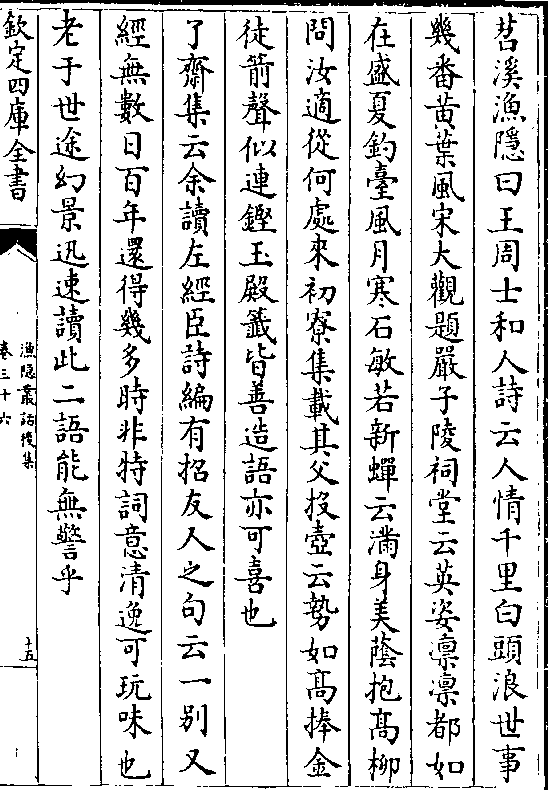 苕溪漁隱曰王周士和人詩云人情千里白頭浪世事
幾番黄葉風宋大觀題嚴子陵祠堂云英姿凛凛都如
在盛夏釣臺風月寒石敏若新蟬云滿身美蔭抱髙柳
問汝適從何處來初寮集載其父投壺云勢如髙捧金
徒箭聲似連鏗玉殿籖皆善造語亦可喜也
了齋集云余讀左經臣詩編有招友人之句云一别又
經無數日百年還得幾多時非特詞意清逸可玩味也
老于世途幻景迅速讀此二語能無警乎
欽定四庫全書
漁隱叢話後集
卷三十六
十五